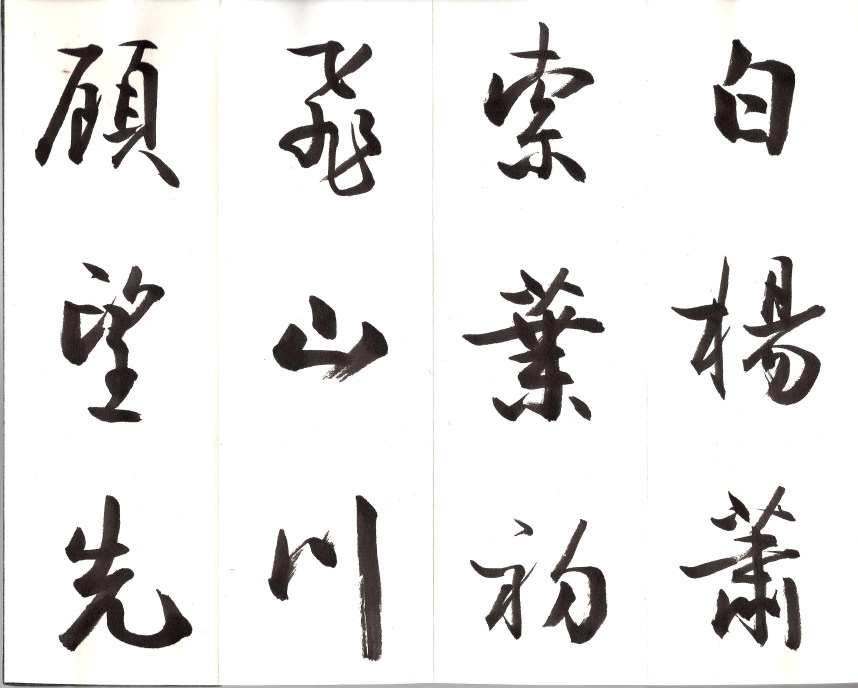 白楊蕭
索葉初
飛山川
顧望先